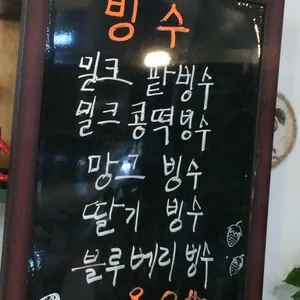 빙수
밀크 팥빙수
밀크콩떡빙수
망고 빙수
딸기 빙수
블루베리빙수